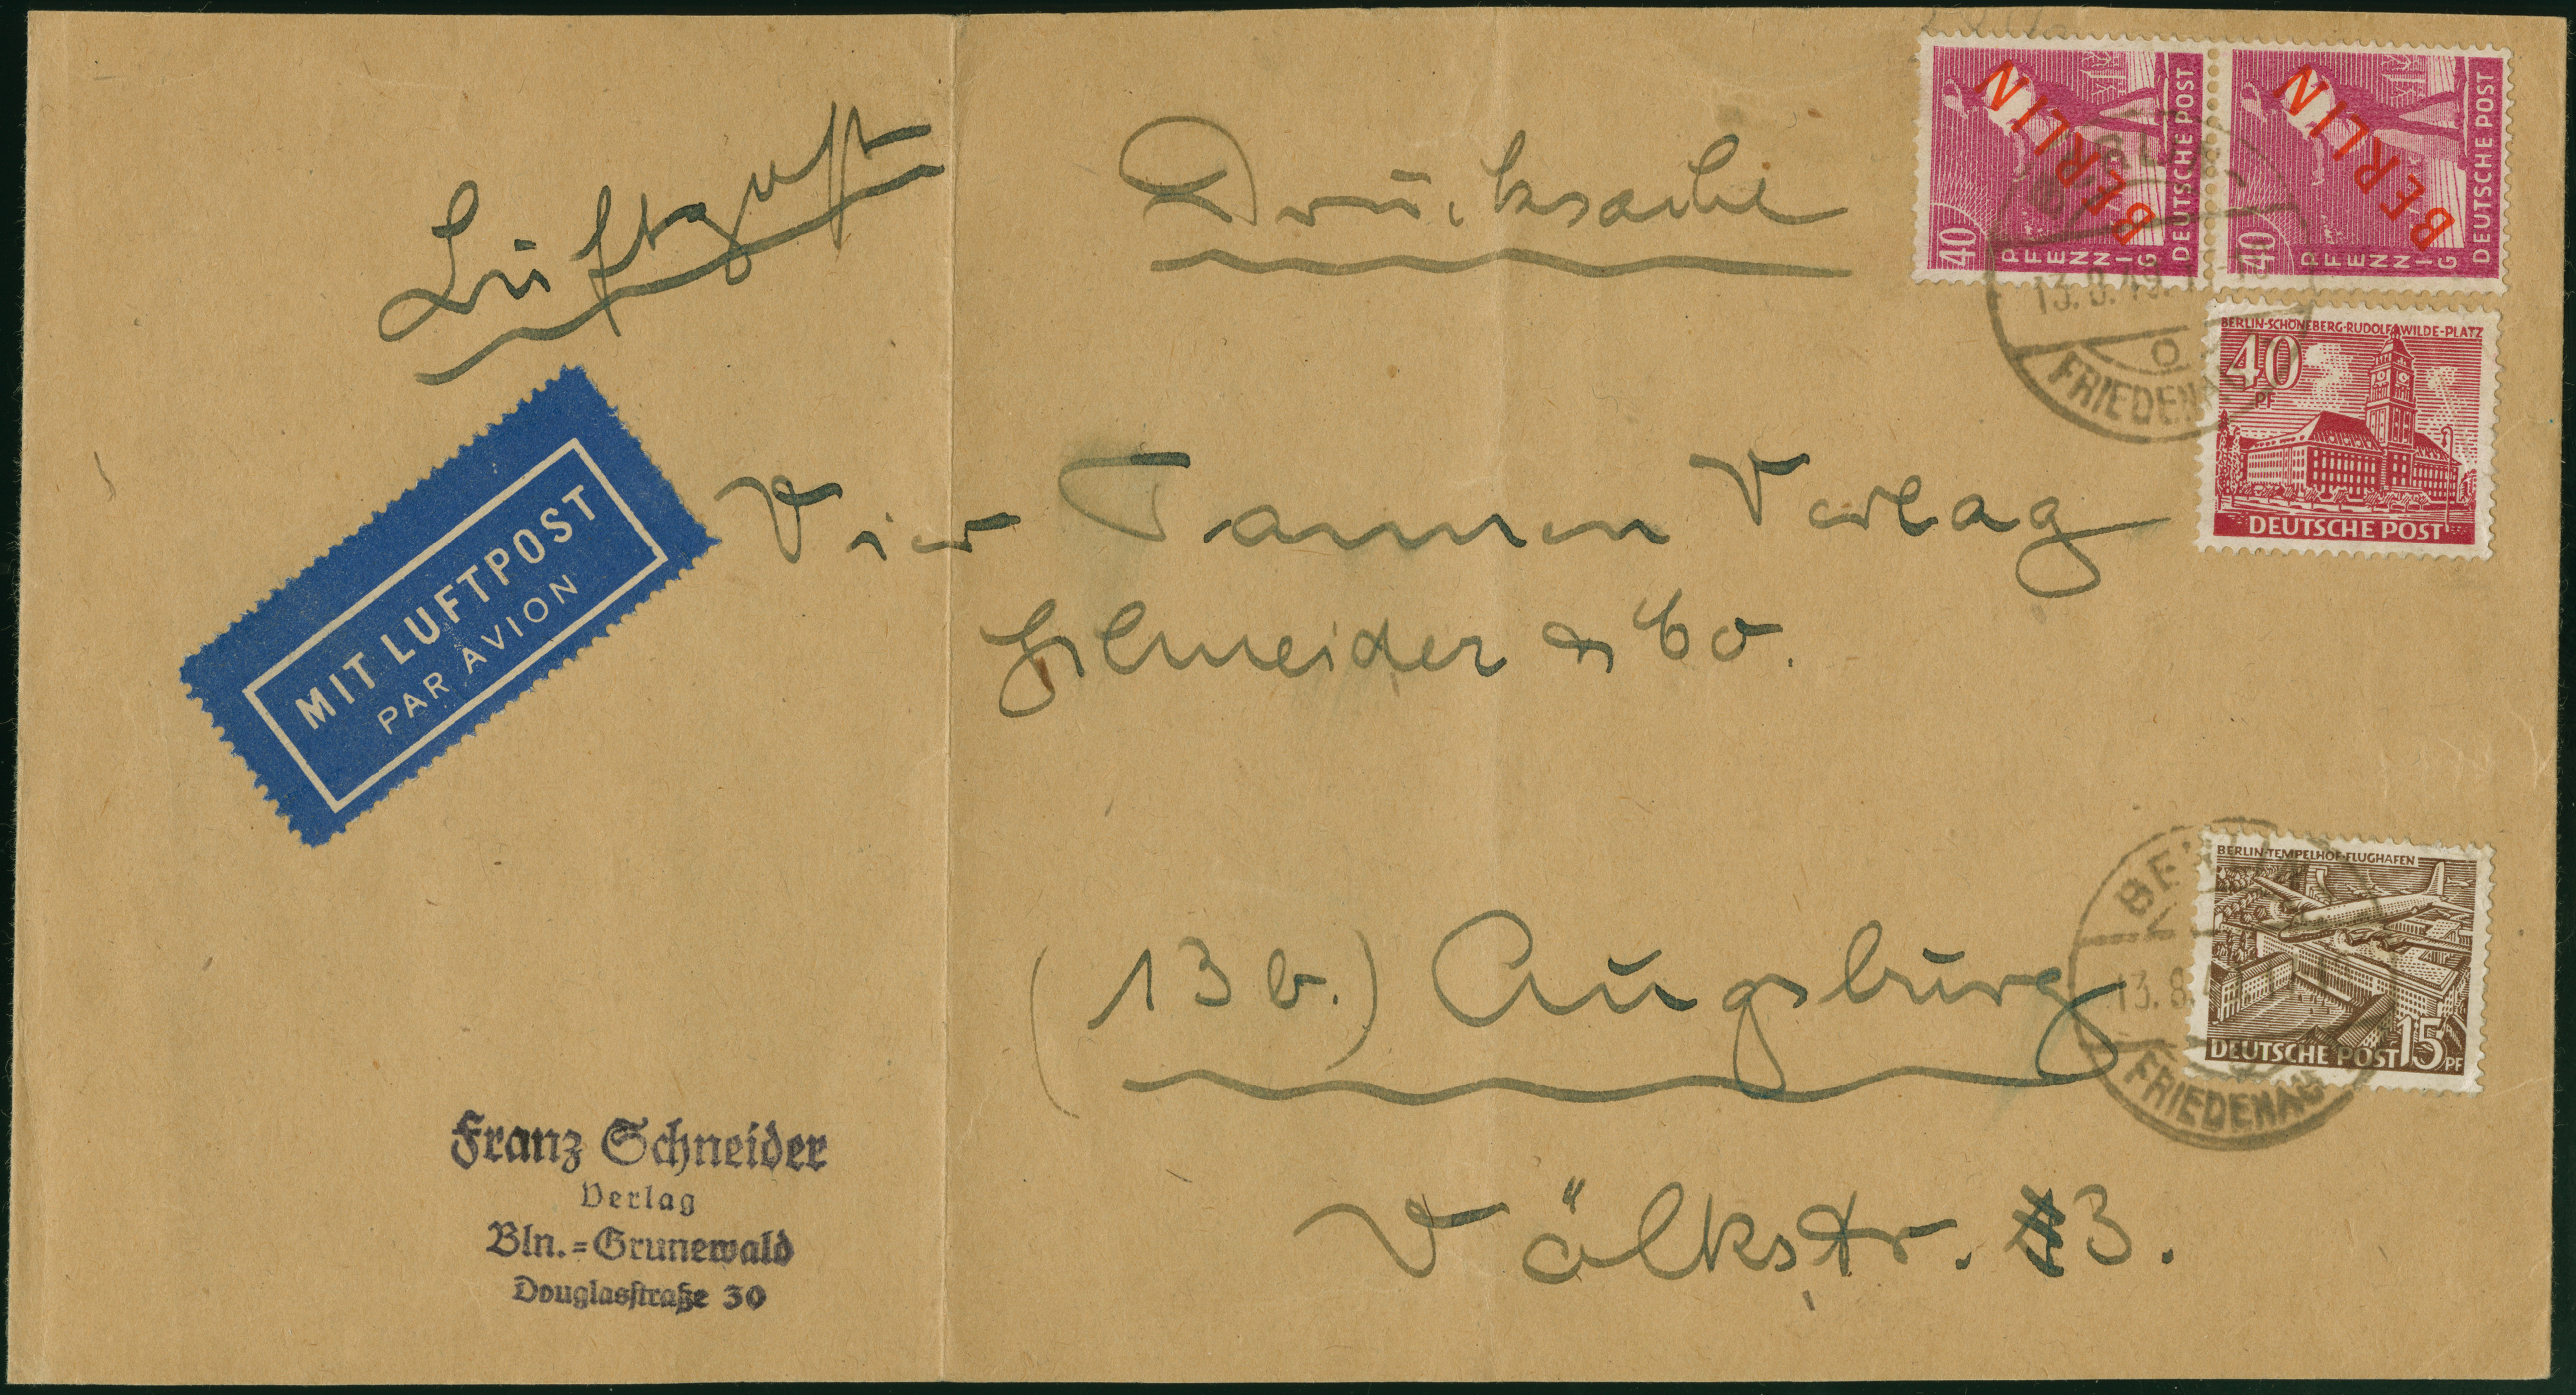 Luftpost
Drucksache
BERLIN
40
PFENNIG
DEUTSCHE POST
BERLIN
40
PFENNIG
DEUTSCHE POST
13.8.49.
FRIEDENAU
BERLIN-SCHÖNEBERG-RUDOLF-WILDE-PLATZ
40
PF
DEUTSCHE POST
MIT LUFTPOST
PAR AVION
Vier Tannen Verlag
Schneider & Co.
BERLIN
13.8.
FRIEDENAU
BERLIN-TEMPELHOF-FLUGHAFEN
DEUTSCHE POST 15 PF
(13b.) Augsburg
Völkstr. 3.
Franz Schneider
Verlag
Bln.=Grunewald
Douglasstraße 30